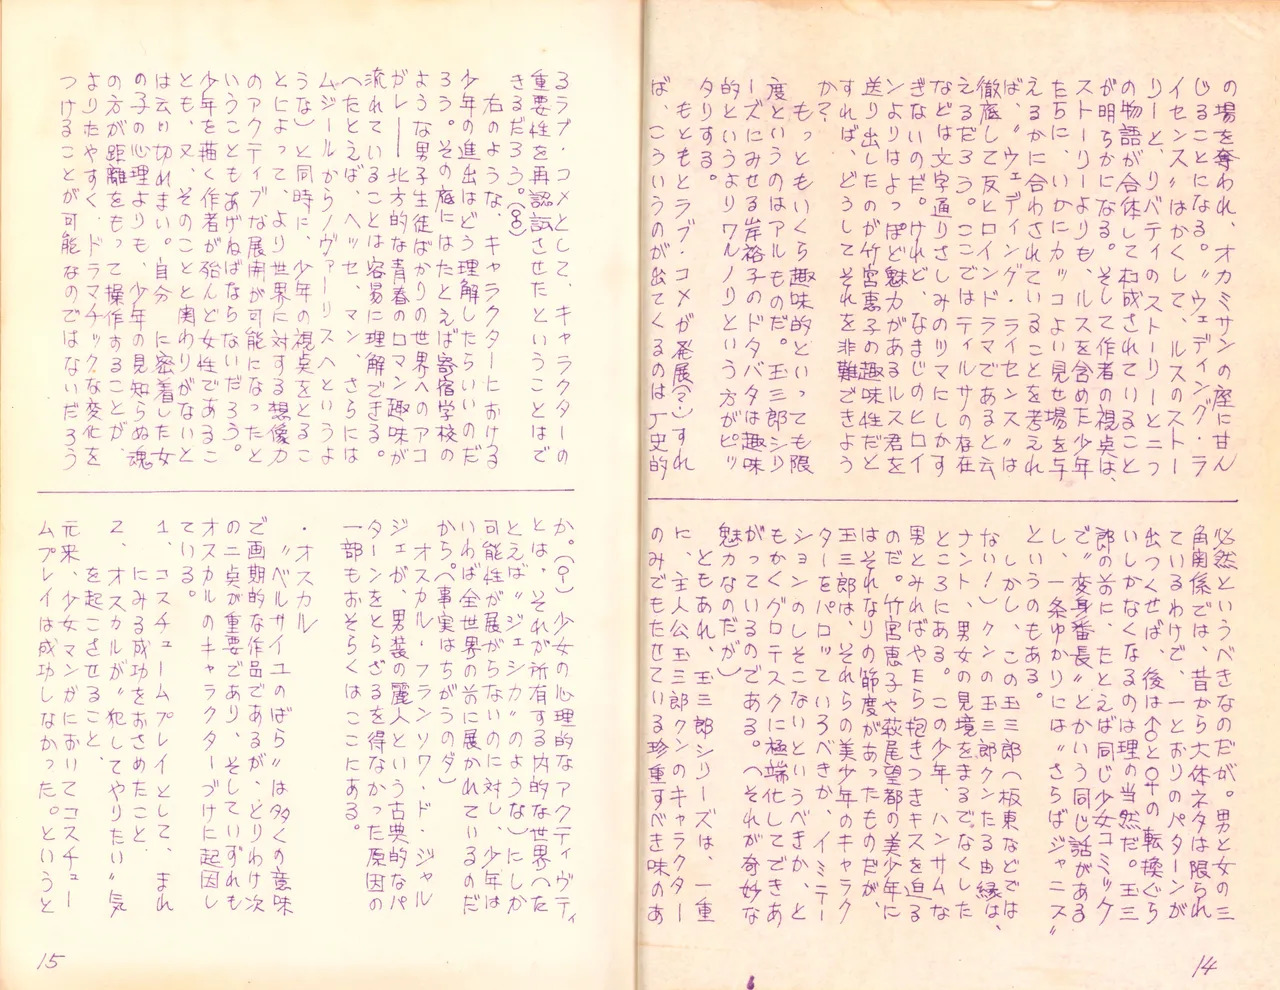 の場を奪われ、オカミサンの座に甘ん
じることになる。〝ウェディング・ラ
イセンス〟はかくして、ルスのストー
リーと、リバティのストーリーと二つ
の物語が合体して構成されていること
が明らかになる。そして作者の視点は、
ストーリーよりも、ルスを含めた少年
たちに、いかにカッコよい見せ場を与
えるかに合わされていることを考えれ
ば、〝ウェディング・ライセンス〟は
徹底して反ヒロインドラマであると云
えるだろう。ここではティルサの存在
などは文字通りさしみのツマにしかす
ぎないのだ。けれど、なまじのヒロイ
ンよりはよっぽど魅力があるルス君を
送り出したのが竹宮恵子の趣味性だと
すれば、どうしてそれを非難できよう
か？
　もっともいくら趣味的といっても限
度というのはアルものだ。玉三郎シリ
ーズにみせる岸裕子のドタバタは趣味
的というよりワルノリという方がピッ
タリする。
　もともとラブ・コメが発展（？）すれ
ば、こういうのが出てくるのは歴史的
必然というべきなのだが。男と女の三
角関係では、昔から大体ネタは限られ
ているわけで、一とおりのパターンが
出つくせば、後は♂と♀の転換ぐら
いしかなくなるのは理の当然だ。玉三
郎の前に、たとえば同じ少女コミック
で〝変身番長〟とかいう同じ話がある
し、一条ゆかりには〝さらばジャニス〟
というのもある。
　しかし、この玉三郎（板東などでは
ない！）クンの玉三郎クンたる由縁は、
ナント、男女の見境をまるでなくした
ところにある。この少年、ハンサムな
男とみればやたら抱きつきキスを迫る
のだ。竹宮恵子や萩尾望都の美少年に
はそれなりの節度があったものだが、
玉三郎は、それらの美少年のキャラク
ターをパロっているべきか、イミテー
ションのしそこないというべきか、と
もかくグロテスクに極端化してできあ
がっているのである。（それが奇妙な
魅力なのだが）
　ともあれ、玉三郎シリーズは、一重
に、主人公玉三郎クンのキャラクター
のみでもたせている珍重すべき味のあ
14
るラブ・コメとして、キャラクターの
重要性を再認識させたということはで
きるだろう。（８）
　右のような、キャラクターにおける
少年の進出はどう理解したらいいのだ
ろう。その底にはたとえば寄宿学校の
ような男子生徒ばかりの世界へのアコ
ガレ――北方的な青春のロマン趣味が
流れていることは容易に理解できる。
（たとえば、ヘッセ、マン、さらには
ムジールからノヴァーリスへというよ
うな）と同時に、少年の視点をとるこ
とによって、より世界に対する想像力
のアクティブな展開が可能になったと
いうこともあげねばならないだろう。
少年を描く作者が殆んど女性であるこ
とも、又、そのことと関わりがないと
は云い切れまい。自分　に密着した女
の子の心理よりも、少年の見知らぬ魂
の方が距離をもって操作することが、
よりたやすく、ドラマチックな変化を
つけることが可能なのではないだろう
か。（９）少女の心理的なアクティヴティ
とは、それが所有する内的な世界へた
とえば〝ジェシカ〟のような）にしか
可能性が展がらないのに対し、少年は
いわば全世界の前に展かれているのだ
から。（事実はちがうのダ）
　オスカル・フランソワ・ド・ジャル
ジェが、男装の麗人という古典的なパ
ターンをとらざるを得なかった原因の
一部もおそらくはここにある。
・オスカル
　〝ベルサイユのばら〟は多くの意味
で画期的な作品であるが、とりわけ次
の二点が重要であり、そしていずれも
オスカルのキャラクターづけに起因し
ている。
１、コスチュームプレイとして、まれ
にみる成功をおさめたこと、
２、オスカルが〝犯してやりたい〟気
を起こさせること、
元来、少女マンガにおいてコスチュー
ムプレイは成功しなかった。というと
15